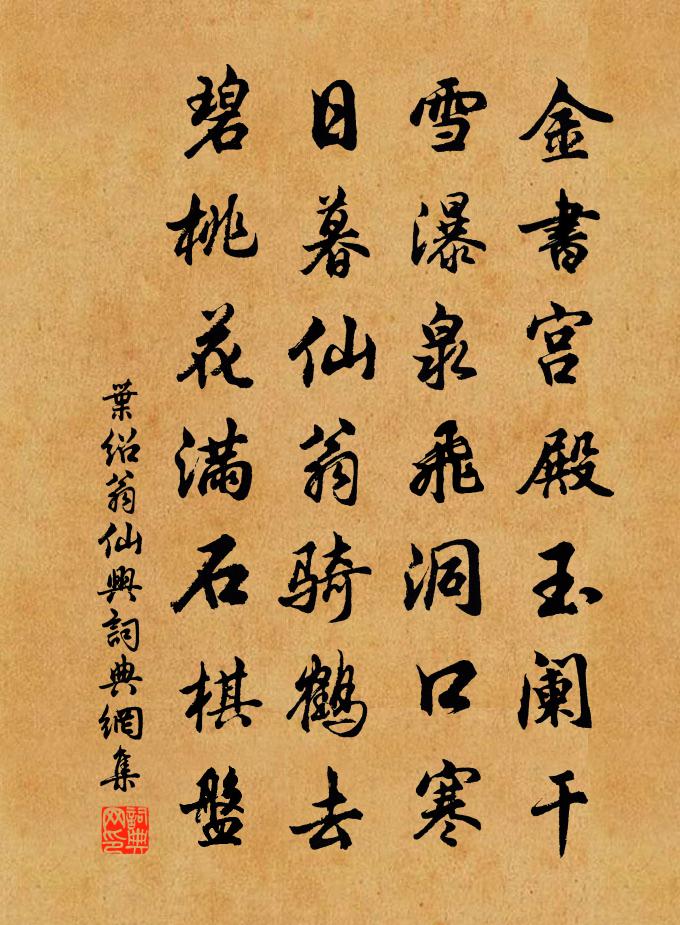 金書宫殿玉阑干
雪瀑泉飛洞口寒
日暮仙翁骑鹤去
碧桃花满石棋盤
葉绍翁仙興詞典網集
詞典网印